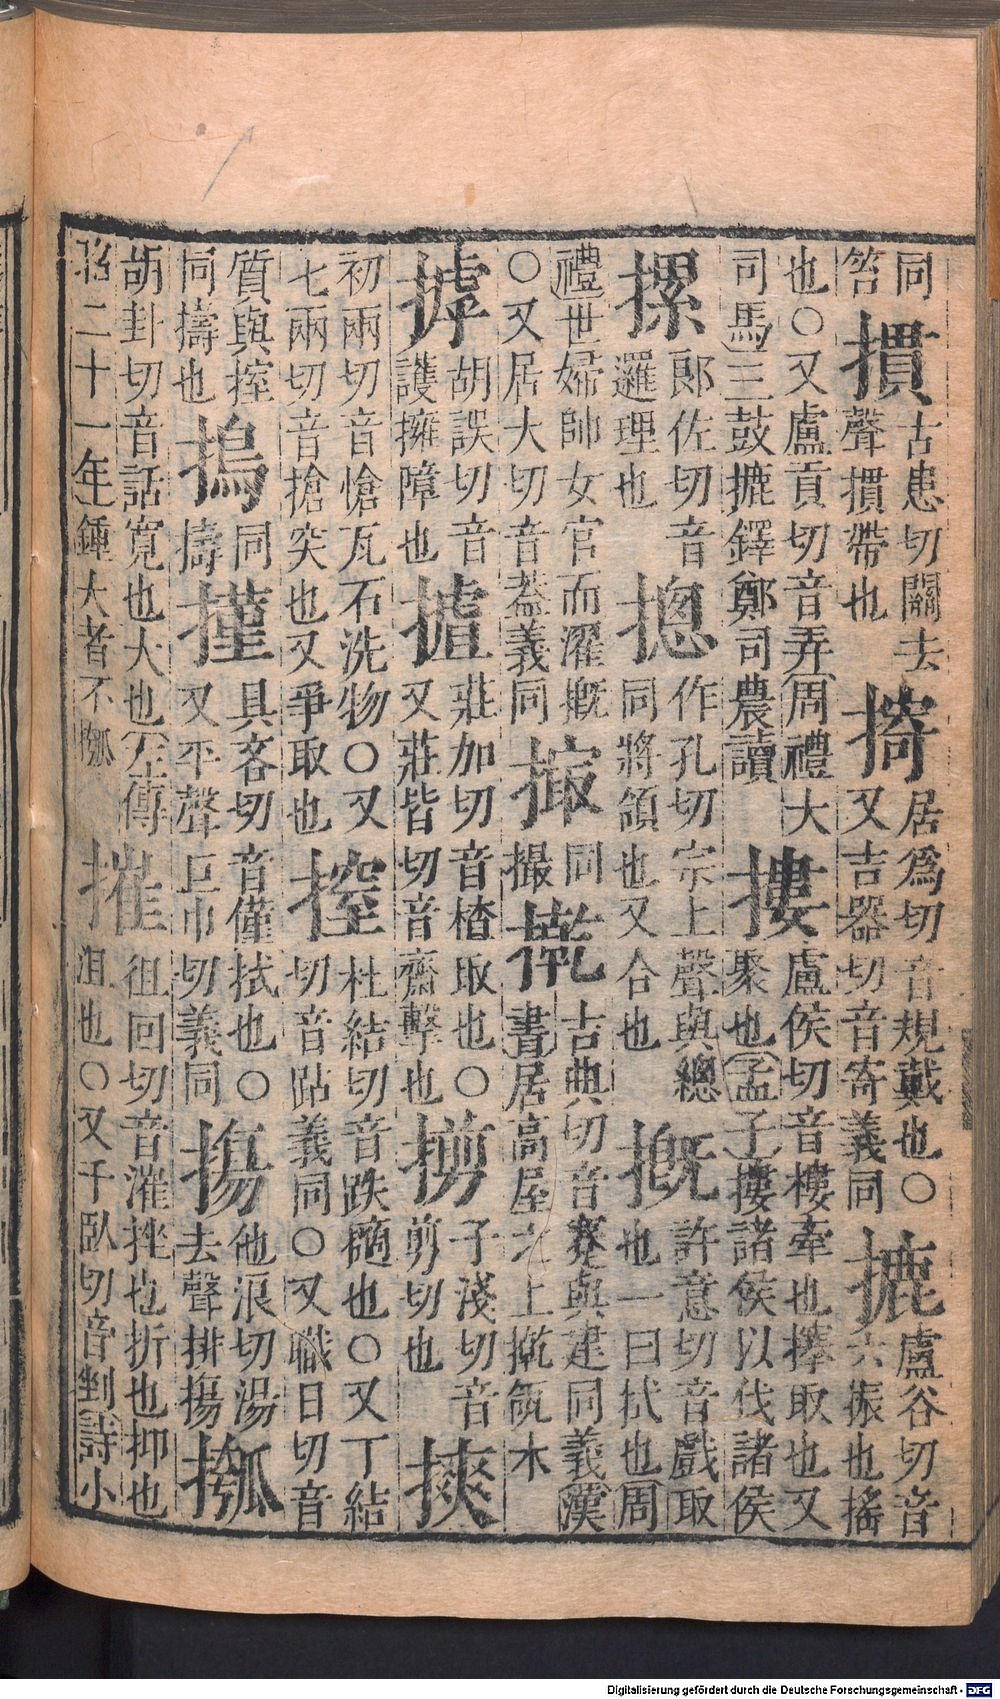 同笞摜古患切關去聲摜帶也居爲切音規戴也○又吉器切音寄義同摝盧谷切音六振也搖
也○又盧貢切音弄周禮大司馬三鼓摝鐸鄭司農讀摟盧侯切音樓牽也擇取也又聚也孟子摟諸侯以伐諸侯
摞郎佐切音邏理也摠作孔切宗上聲與總同將領也又合也摡許意切音戲取也一曰拭也周
禮世婦帥女官而濯摡○又居大切音蓋義同同撮古典切音蹇與建同義漢書居高屋之上瓴水
摢胡誤切音護擁障也摣莊加切音楂取也○又莊皆切音齋擊也子淺切音剪切也摤
初兩切音愴瓦石洗物○又七兩切音搶突也又爭取也杜結切音跌隨也○又丁結切音跕義同○又職日切音
質與挃同擣也摀同擣㨷具吝切音僅拭也○又平聲巨巾切義同摥他浪切湯去聲排摥摦
胡卦切音話寬也大也左傳昭二十一年鍾大者不摦摧徂回切音漼挫也折也抑也沮也○又千臥切音剉詩小
Digitalisierung gefördert durch die Deutsche Forschungsgemeinschaft - DFG